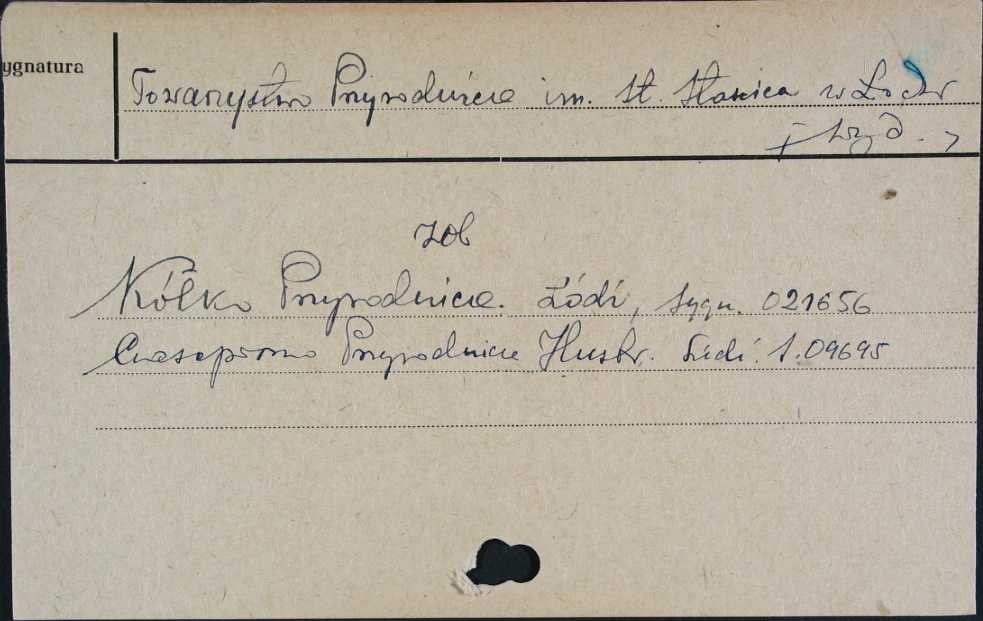 ygnatura
Towarzystwo Przyrodnicze im. St. Staszica w Łodzi
wyd.
zob
Kółko Przyrodnicze. Łódź, sygn. 021656
Czasopismo Przyrodnicze Ilustr. Łódź. S. 09695